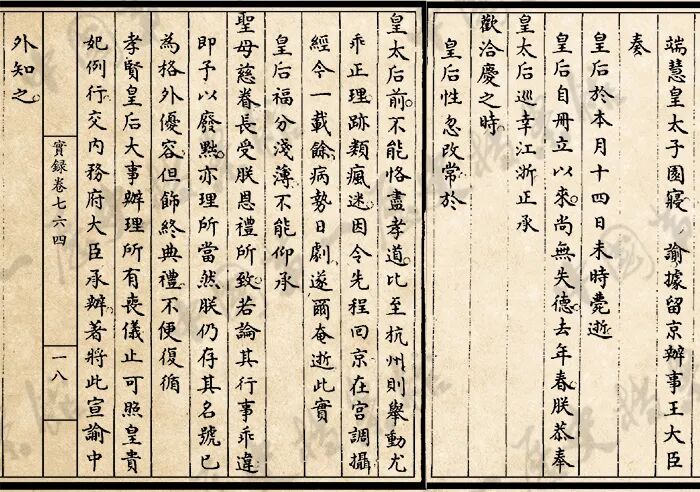 端慧皇太子園寢。諭據留京辦事王大臣
奏
皇后於本月十四日未時薨逝
皇后自冊立以來尚無失德。去年春朕恭奉
皇太后巡幸江浙正承
歡洽慶之時。
皇后性忽改常於
皇太后前。不能恪盡孝道。比至杭州則舉動尤
乖正理。跡類瘋迷。因令先程回京在宮調攝
經今一載餘。病勢日劇。遂爾奄逝。此實
皇后福分淺薄。不能仰承
聖母慈眷長受朕恩禮所致。若論其行事乖違
即予以廢黜。亦理所當然。朕仍存其名號。已
為格外優容。但飾終典禮。不便復循
孝賢皇后大事辦理。所有喪儀。止可照皇貴
妃例行。交內務府大臣承辦。著將此宣諭中
實錄卷七六四
一八
外知之。